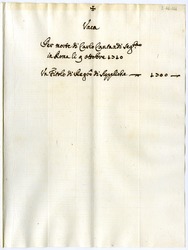 Vaca
Per morte di Carlo Cantandi Segrio
in Roma li 9 ottobre 1710
Un Titolo di Segria di Suppliche — 1300 —